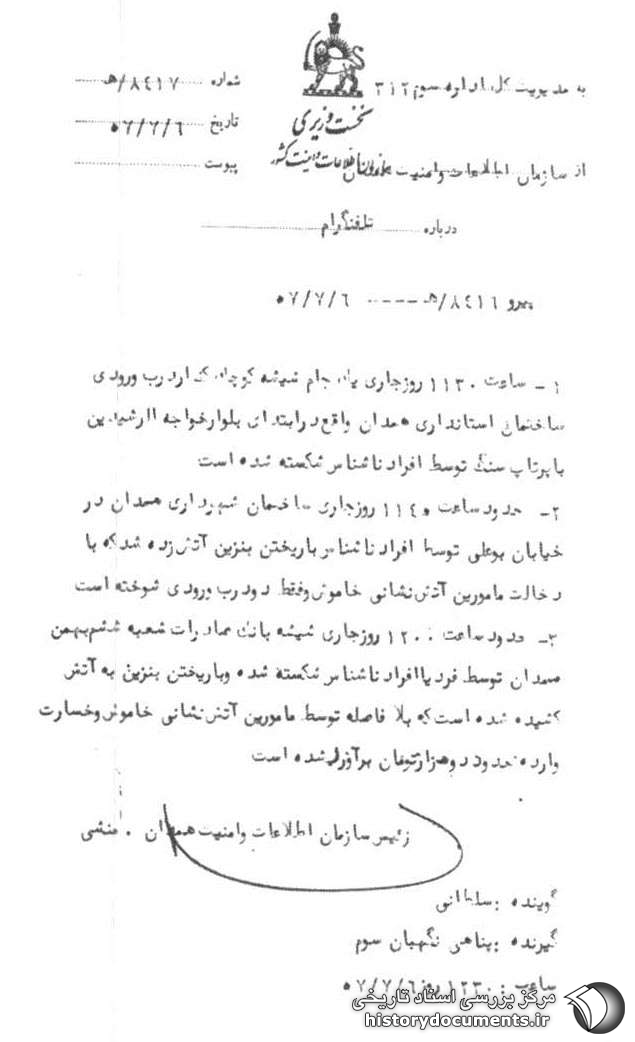 به مدیریت کل اداره سوم ۳۱۲
شماره ۸٤۱۷/هـ
نخست وزیری
تاریخ
از سازمان اطلاعات و امنیت
سازمان اطلاعات و امنیت کشور
پیوست
درباره تلفنگرام
پیرو ۸٤۱٦/هـ ---- ۰۷/۷/٦
۱- ساعت ۱۱۳۰ روزجاری یک جام شیشه کوچک درب ورودی
ساختمان استانداری همدان واقع در ابتدای بلوار خواجه رشیدالدین
با پرتاب سنگ توسط افراد ناشناس شکسته شده است
۲- حدود ساعت ۱۱٤٥ روزجاری ساختمان شهرداری همدان در
خیابان بوعلی توسط افراد ناشناس باریختن بنزین آتش زده شد که با
دخالت مامورین آتش نشانی خاموش وفقط دو درب ورودی سوخته است
۳- حدود ساعت ۱۲۰۰ روزجاری شیشه بانک صادرات شعبه ششم بهمن
همدان توسط فرد یا افراد ناشناس شکسته شده وباریختن بنزین به آتش
کشیده شده است که بلا فاصله توسط مامورین آتش نشانی خاموش وخسارت
وارده حدود دوهزارتومان برآورد شده است
رئیس سازمان اطلاعات وامنیت همدان . منشی
گوینده : سلطانی
گیرنده : پناهی نگهبان سوم
ساعت : ۱۲۳۰ روز ۰۷/۷/٦
مرکز بررسی اسناد تاریخی
historydocuments.ir